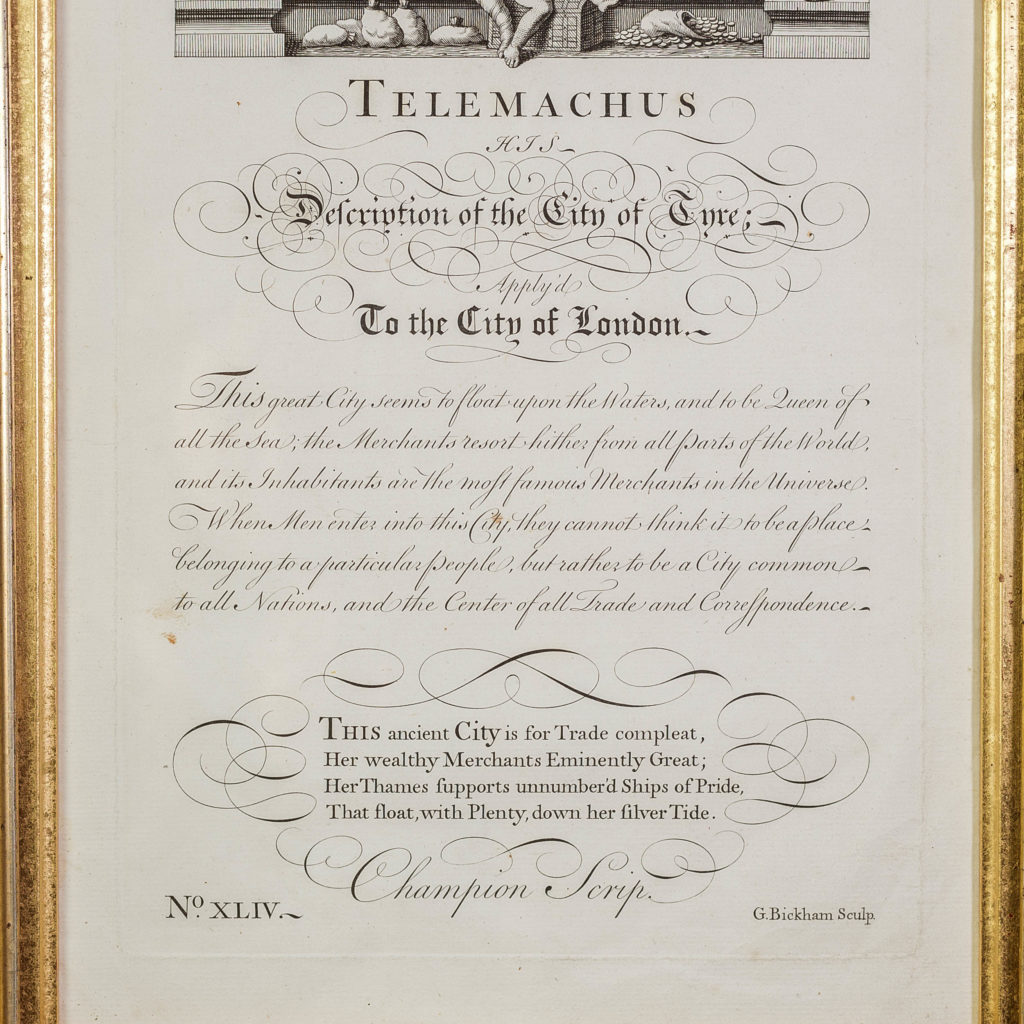 TELEMACHUS
HIS
Deſcription of the City of Tyre;
Apply'd
To the City of London.
This great City seems to float upon the Waters, and to be Queen of
all the Sea; the Merchants resort hither from all Parts of the World,
and its Inhabitants are the moſt famous Merchants in the Universe.
When Men enter into this City, they cannot think it to be a Place
belonging to a particular People, but rather to be a City common
to all Nations, and the Center of all Trade and Correſpondence.
THIS ancient City is for Trade compleat,
Her wealthy Merchants Eminently Great;
Her Thames ſupports unnumber'd Ships of Pride,
That float, with Plenty, down her ſilver Tide.
Champion Scrip.
No. XLIV.
G. Bickham Sculp.